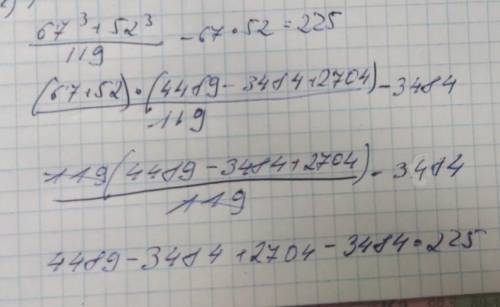 (67³ + 52³)/119 - 67 · 52 = 225
((67+52) · (4489 - 3484 + 2704))/119 - 3484
(119(4489 - 3484 + 2704))/119 - 3484
4489 - 3484 + 2704 - 3484 = 225